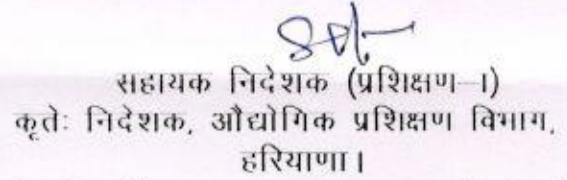 सहायक निदेशक (प्रशिक्षण–I)
कृतेः निदेशक, औद्योगिक प्रशिक्षण विभाग,
हरियाणा।